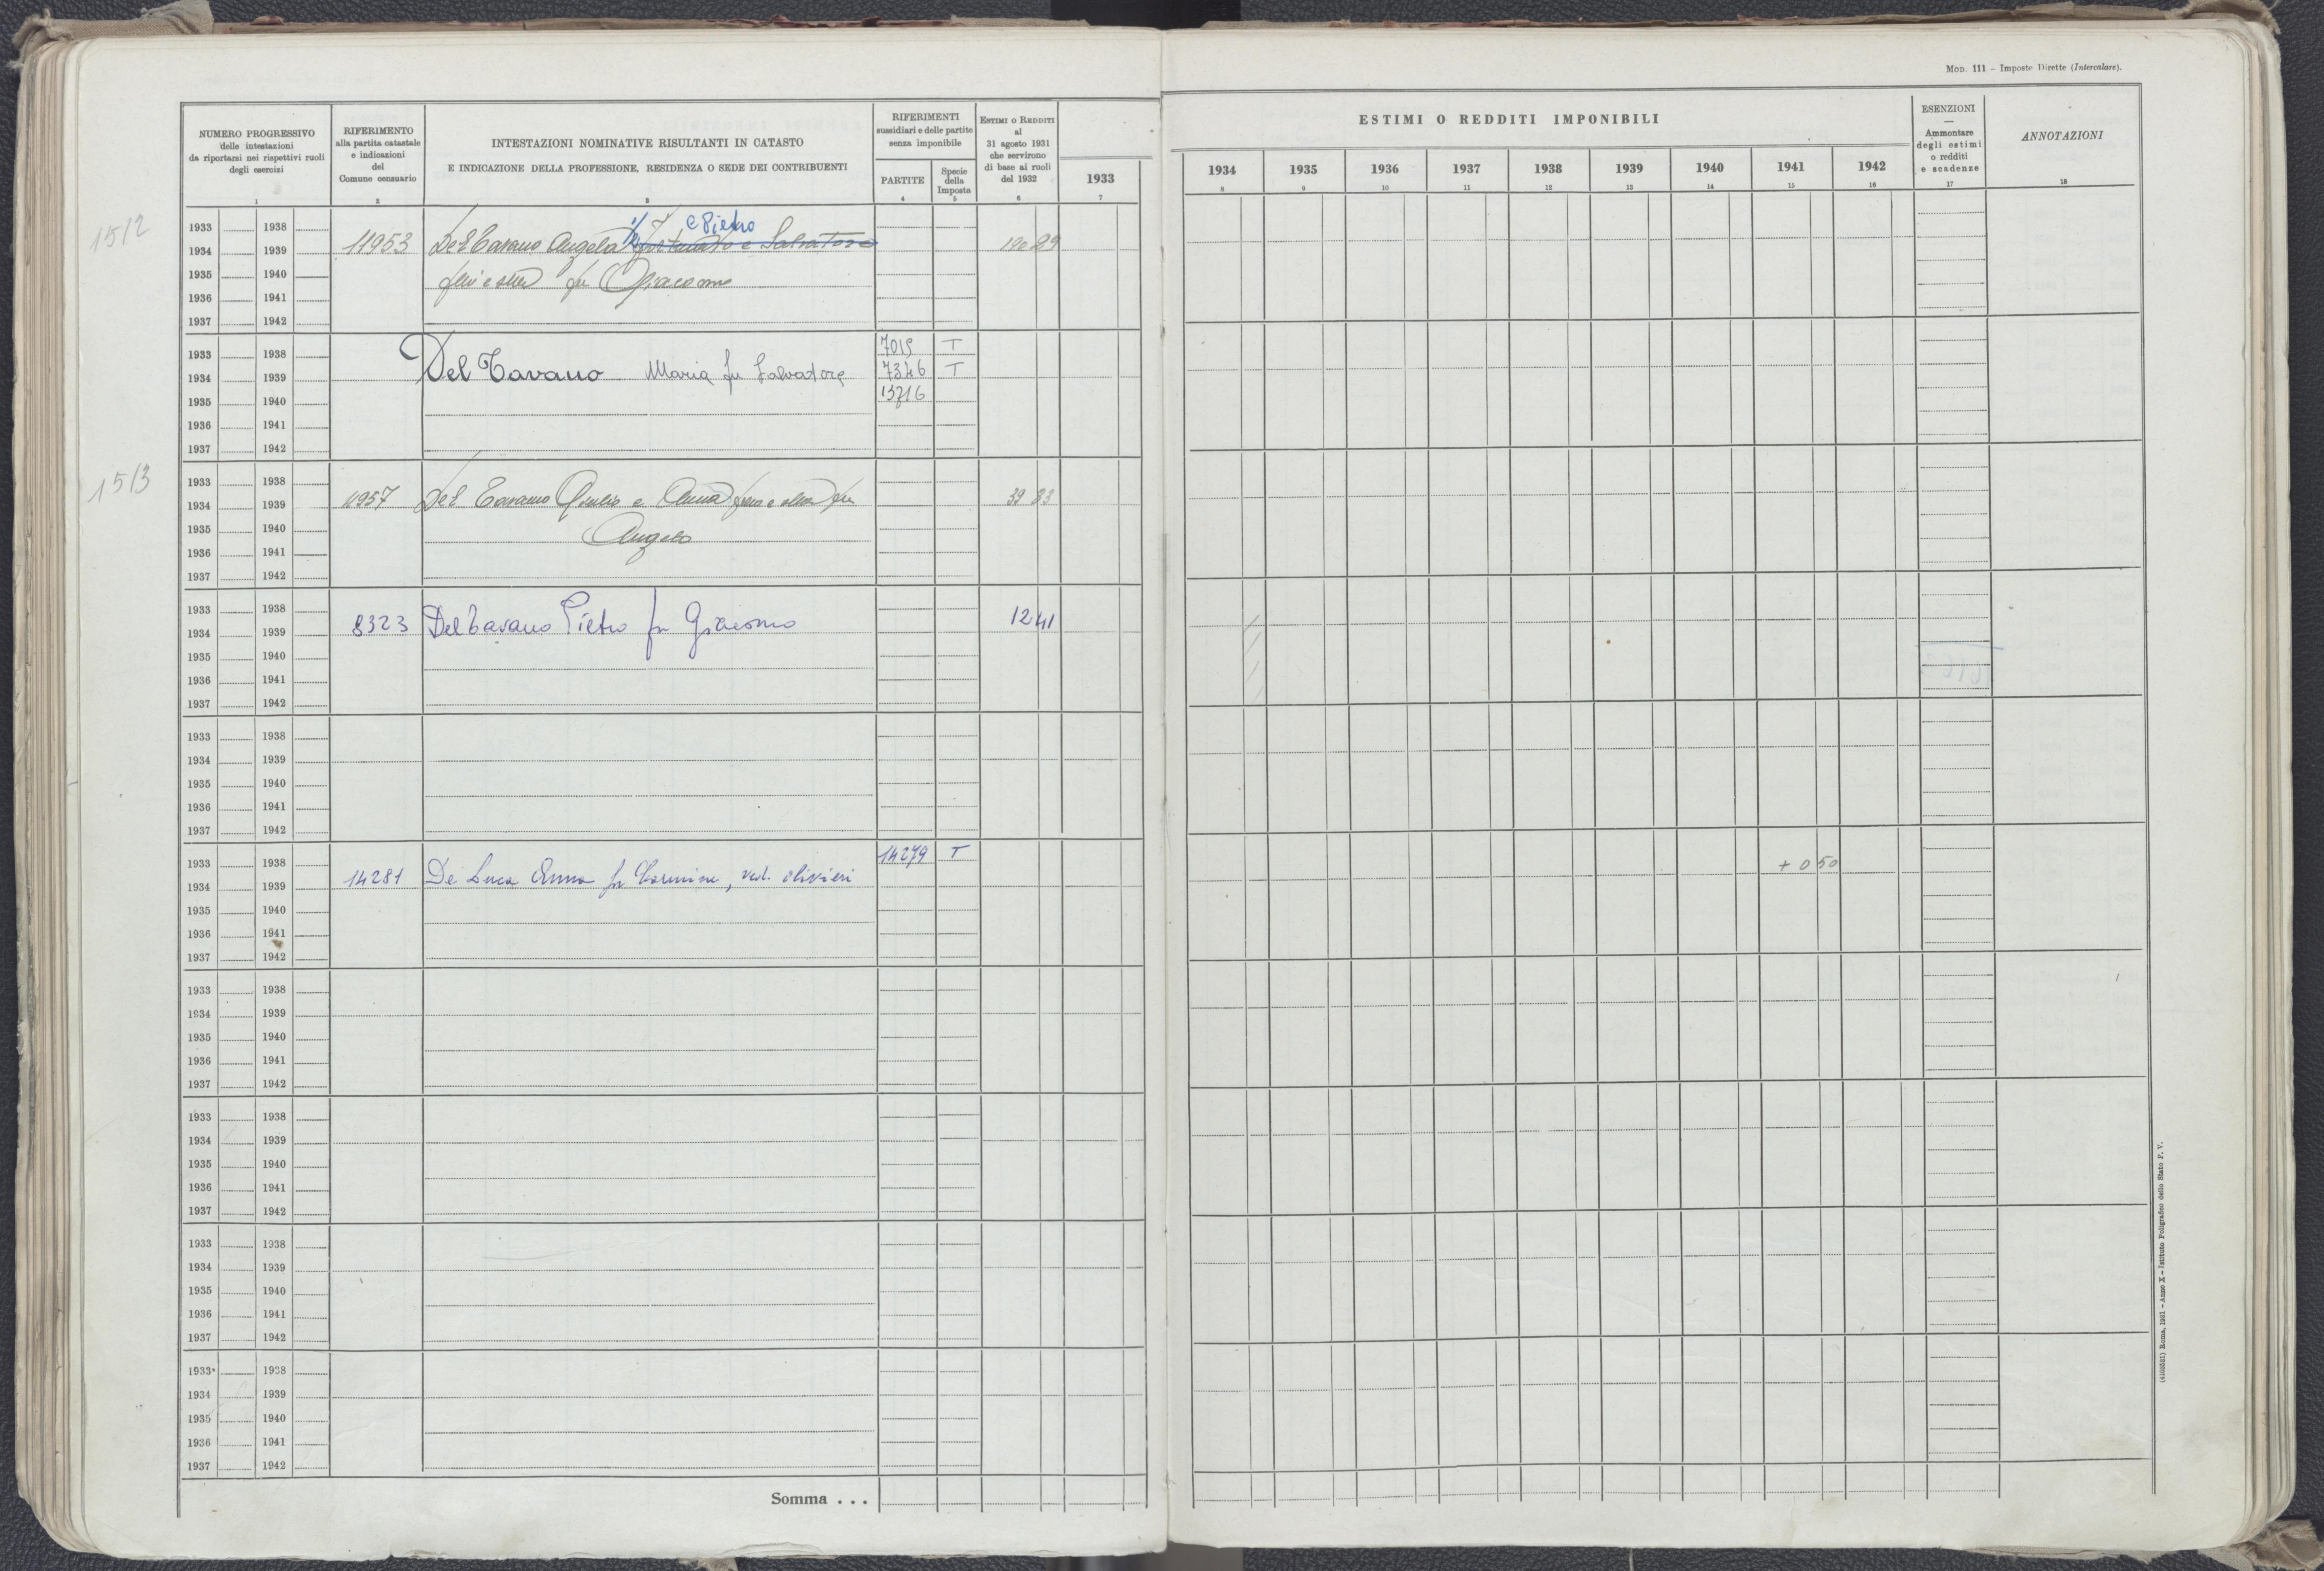 MOD. 111 – Imposte Dirette (Intercalare).
NUMERO PROGRESSIVO
delle intestazioni
da riportarsi nei rispettivi ruoli
degli esercizi
1
RIFERIMENTO
alla partita catastale
e indicazioni
del
Comune censuario
2
INTESTAZIONI NOMINATIVE RISULTANTI IN CATASTO
E INDICAZIONE DELLA PROFESSIONE, RESIDENZA O SEDE DEI CONTRIBUENTI
3
RIFERIMENTI
sussidiari e delle partite
senza imponibile
PARTITE
4
Specie
della
Imposta
5
ESTIMI O REDDITI
al
31 agosto 1931
che servirono
di base ai ruoli
del 1932
6
1933
7
ESTIMI O REDDITI IMPONIBILI
1934 1935 1936 1937 1938 1939 1940 1941 1942
8 9 10 11 12 13 14 15 16
ESENZIONI
—
Ammontare
degli estimi
o redditi
e scadenze
17
ANNOTAZIONI
18
1512
1933 1938
e Pietro
1934 1939 11953 Del Tavano Angela 1/2 Fortunato e Salvatore
1935 1940
fu Giacomo
1936 1941
1937 1942
1933 1938 7015 T
1934 1939 Del Tavano Maria fu Salvatore 7346 T
1935 1940 13716
1936 1941
1937 1942
1513
1933 1938
1934 1939 Del Tavano Giulio e Anna fu 39 83
1935 1940
Angelo
1936 1941
1937 1942
1933 1938
1934 1939 8323 Del Tavano Pietro fu Giacomo 12 41
1935 1940
1936 1941
1937 1942
1933 1938
1934 1939
1935 1940
1936 1941
1937 1942
1933 1938 14279 T + 0 50
1934 1939 14281 De Luca Anna fu Carmine, ved. Olivieri
1935 1940
1936 1941
1937 1942
1933 1938
1934 1939
1935 1940
1936 1941
1937 1942
1933 1938
1934 1939
1935 1940
1936 1941
1937 1942
1933 1938
1934 1939
1935 1940
1936 1941
1937 1942
1933 1938
1934 1939
1935 1940
1936 1941
1937 1942
Somma . . .
Roma, 1931 – Anno X – Istituto Poligrafico dello Stato P. V.